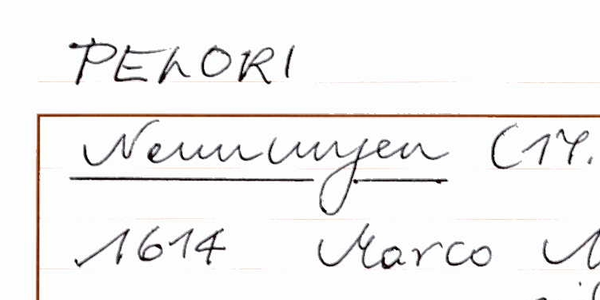 PELORI
Nennungen (17.
1614 Marco